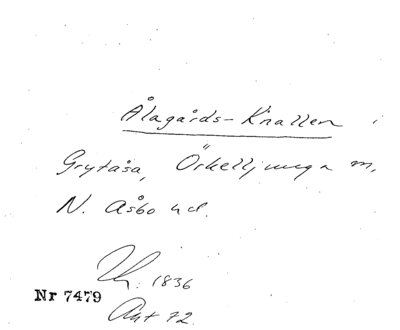 Ålagårds-Knallen
Grytåsa, Örkelljunga m,
N. Åsbo hd.
1836
Nr 7479
Akt 72.